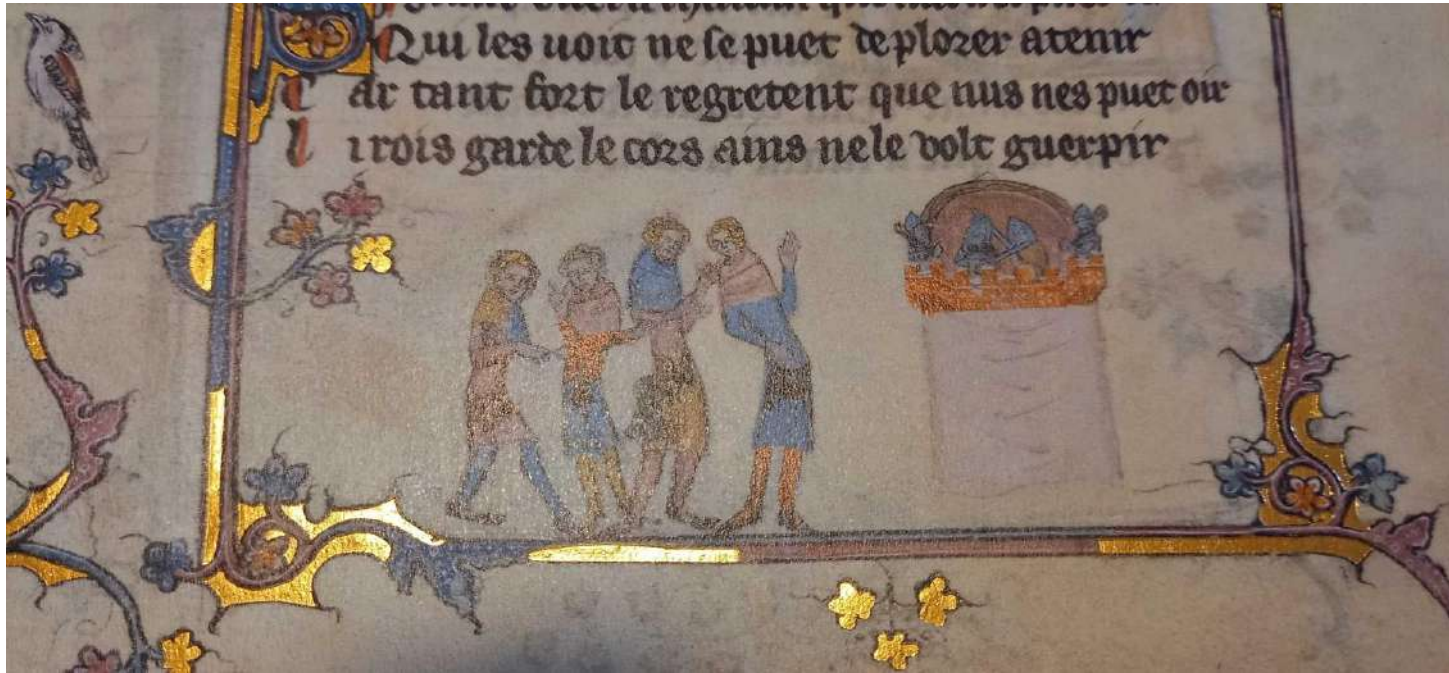 Qui les uoit ne se puet de plorer atenir
Car tant fort le regretent que nus nes puet oir
li rois garde le cors ains ne le volt guerpir